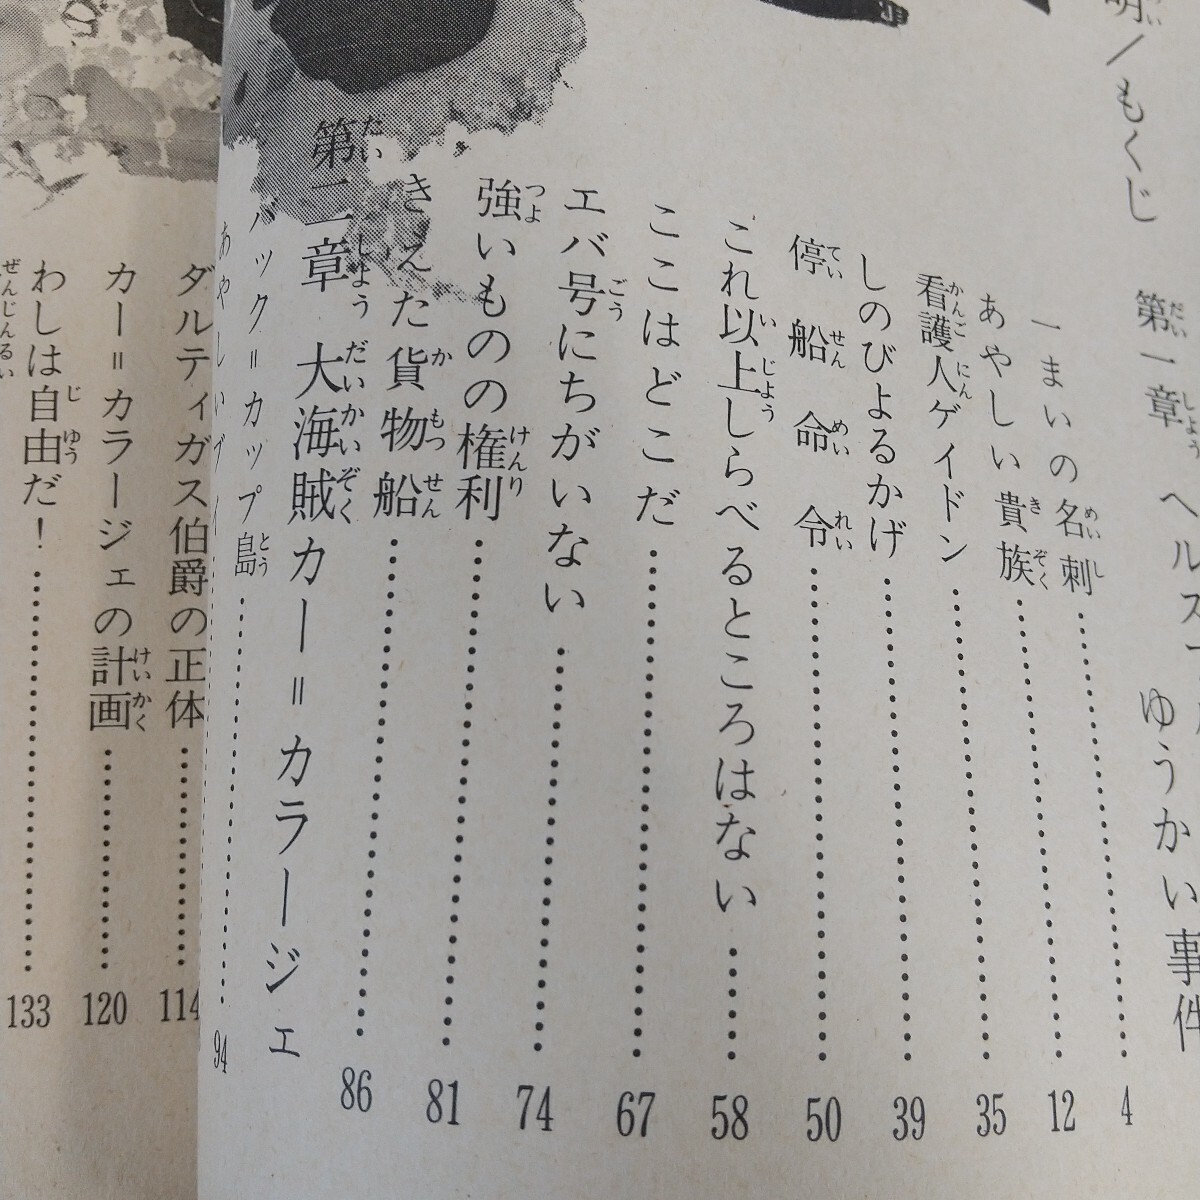 ／もくじ
第一章 ヘルス
ゆうかい事件
一まいの名刺……4
あやしい貴族……12
看護人ゲイドン……35
しのびよるかげ……39
停船命令……50
これ以上しらべるところはない……58
ここはどこだ……67
エバ号にちがいない……74
強いものの権利……81
きえた貨物船……86
第二章 大海賊カー＝カラージェ
バック＝カップ島……94
ダルティガス伯爵の正体……114
カー＝カラージェの計画……120
わしは自由だ！……133